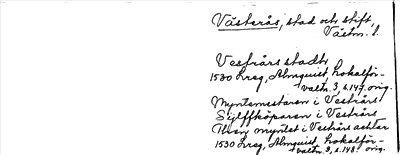 Västerås, stad och stift,
Västm. l.
Vesfrårs stadt
1530 Lreg, Almquist, Lokalför-
valtn. 3, s. 147. orig.
Myntemestaren i Vesfrårs
Sylffköparen i Vesfrårs
myntet i Vesfrårs achtar
1530 Lreg, Almquist, Lokalför-
valtn. 3, s. 148. orig.